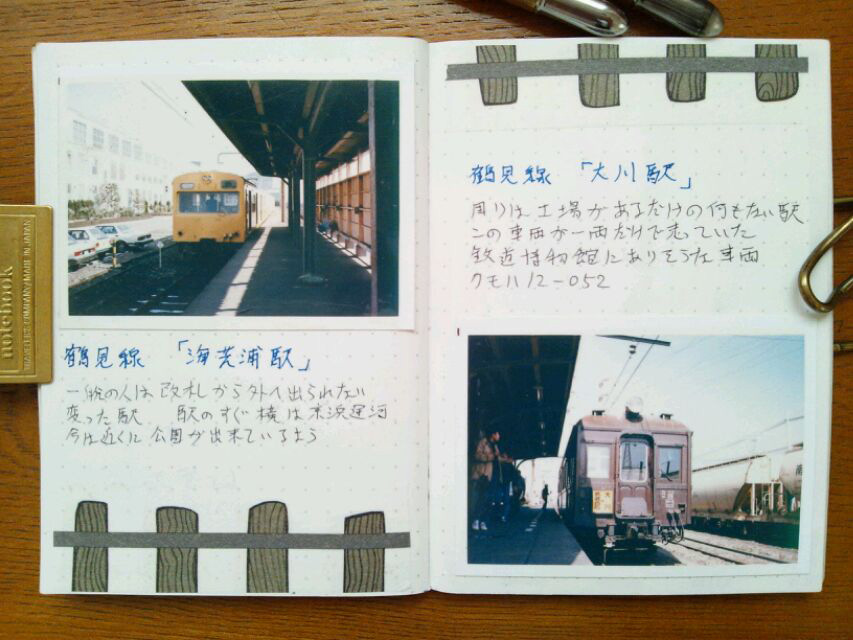 鶴見線 「海芝浦駅」
一般の人は改札から外へ出られない
変った駅 駅のすぐ横は京浜運河
今は近くに公園が出来ているよう
鶴見線 「大川駅」
周りは工場があるだけの何もない駅
この車両が一両だけで走っていた
鉄道博物館にありそうな車両
クモハ12-052
notebook